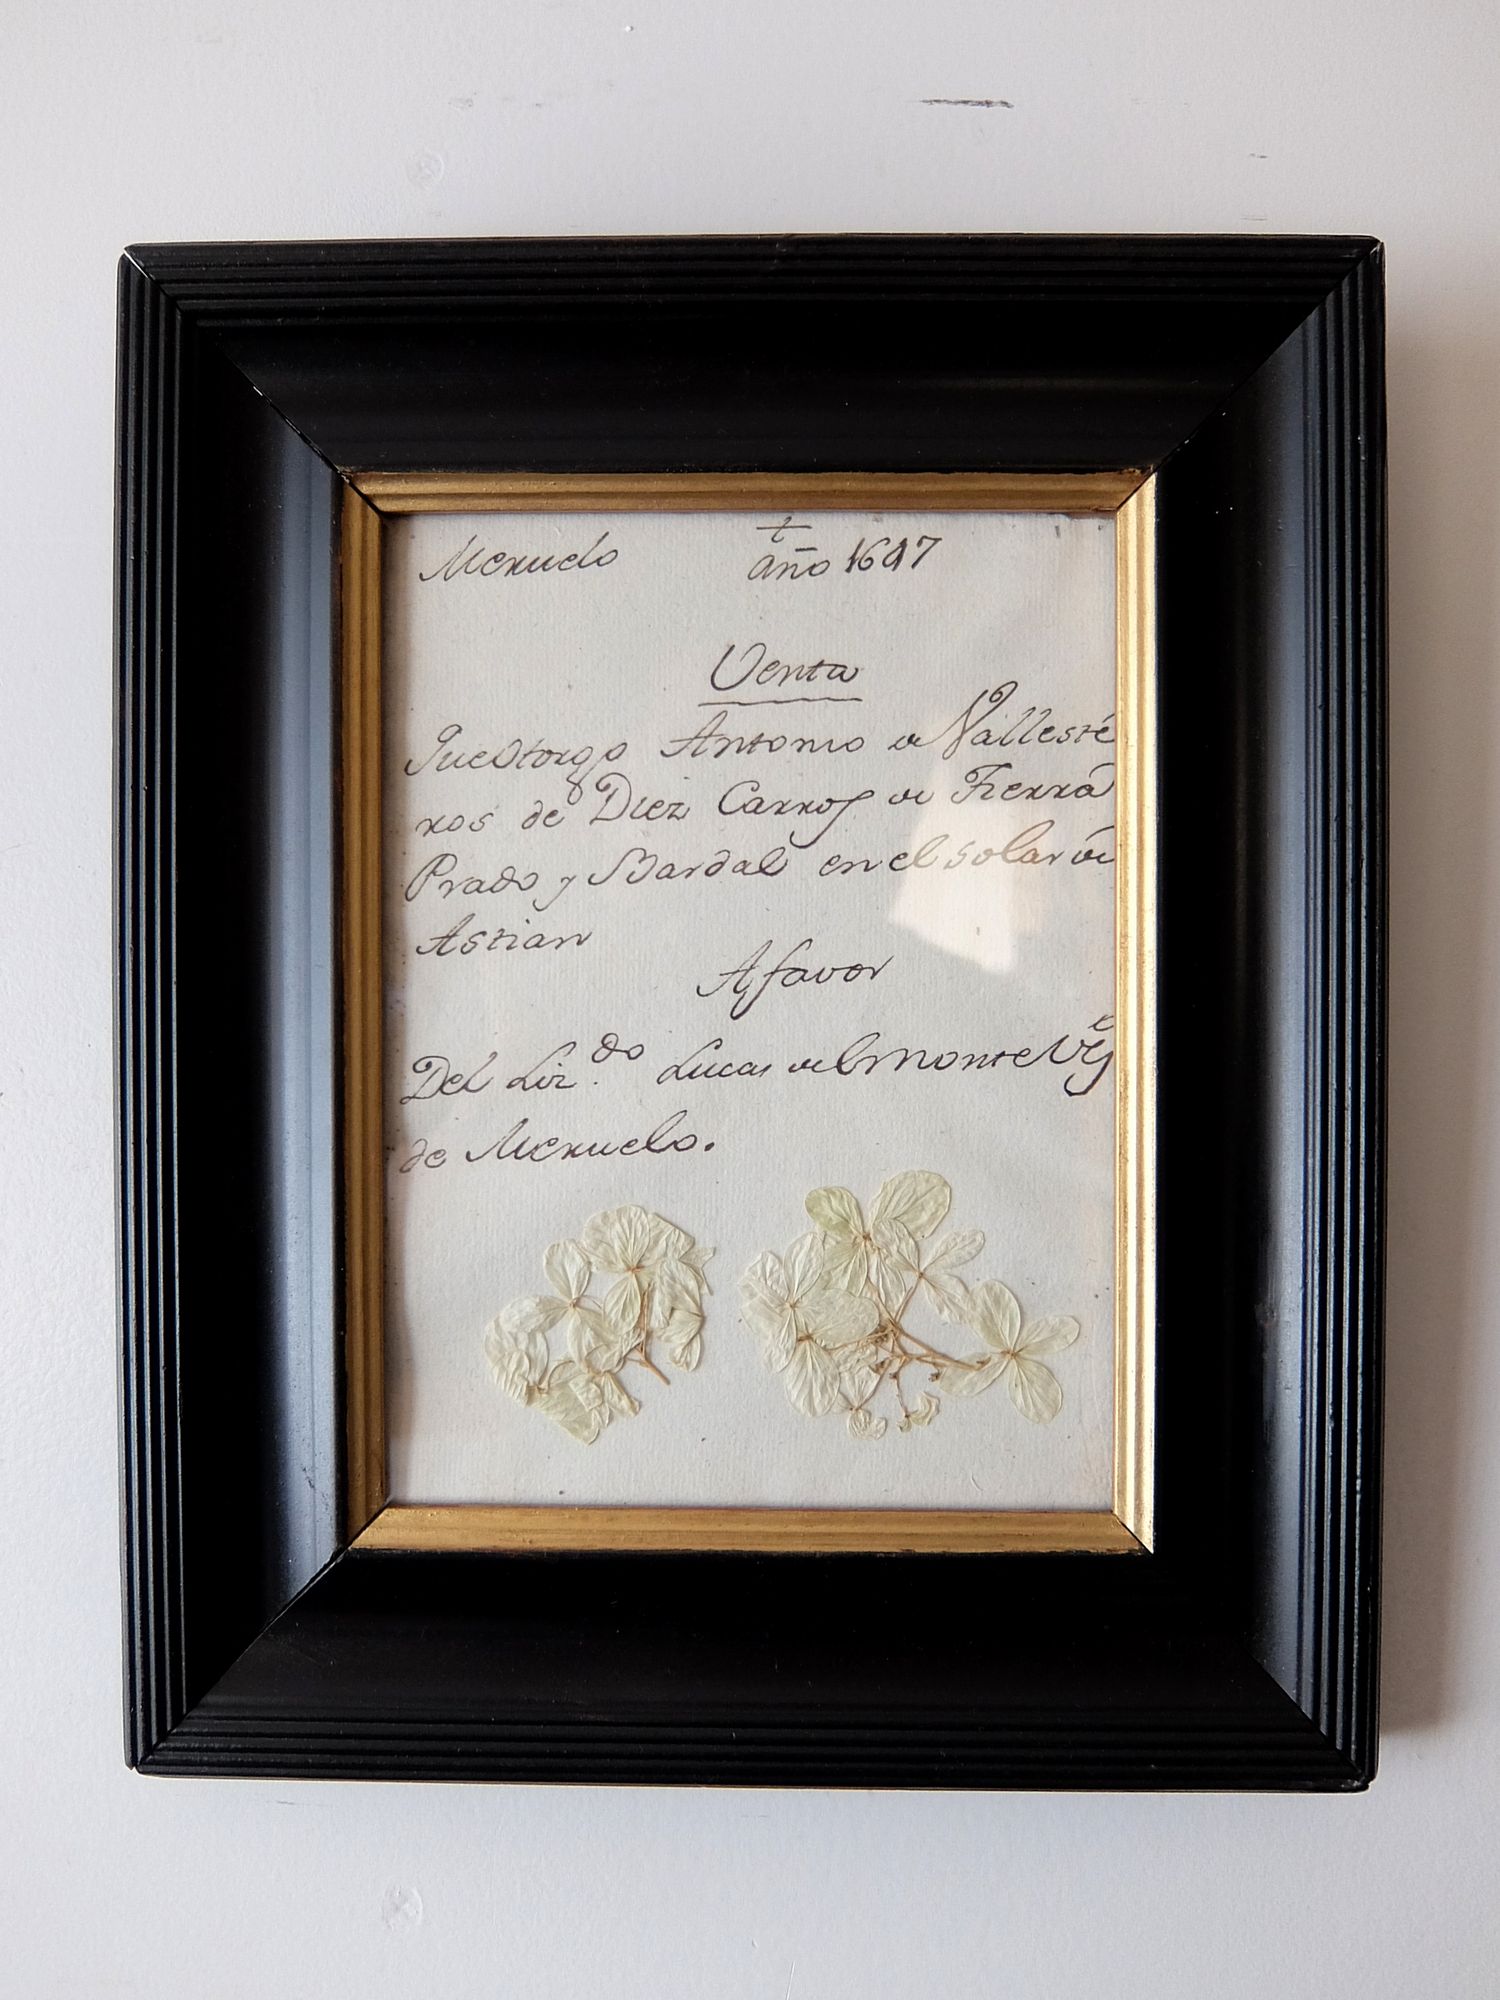 Meruelo año 1617
Venta
Que Otorgo Antonio de Vallesté
ros de Diez Carros de Tierra
Prado y Bardal en el solar de
Astian
A favor
Del Liz.do Lucas del Monte
de Meruelo.